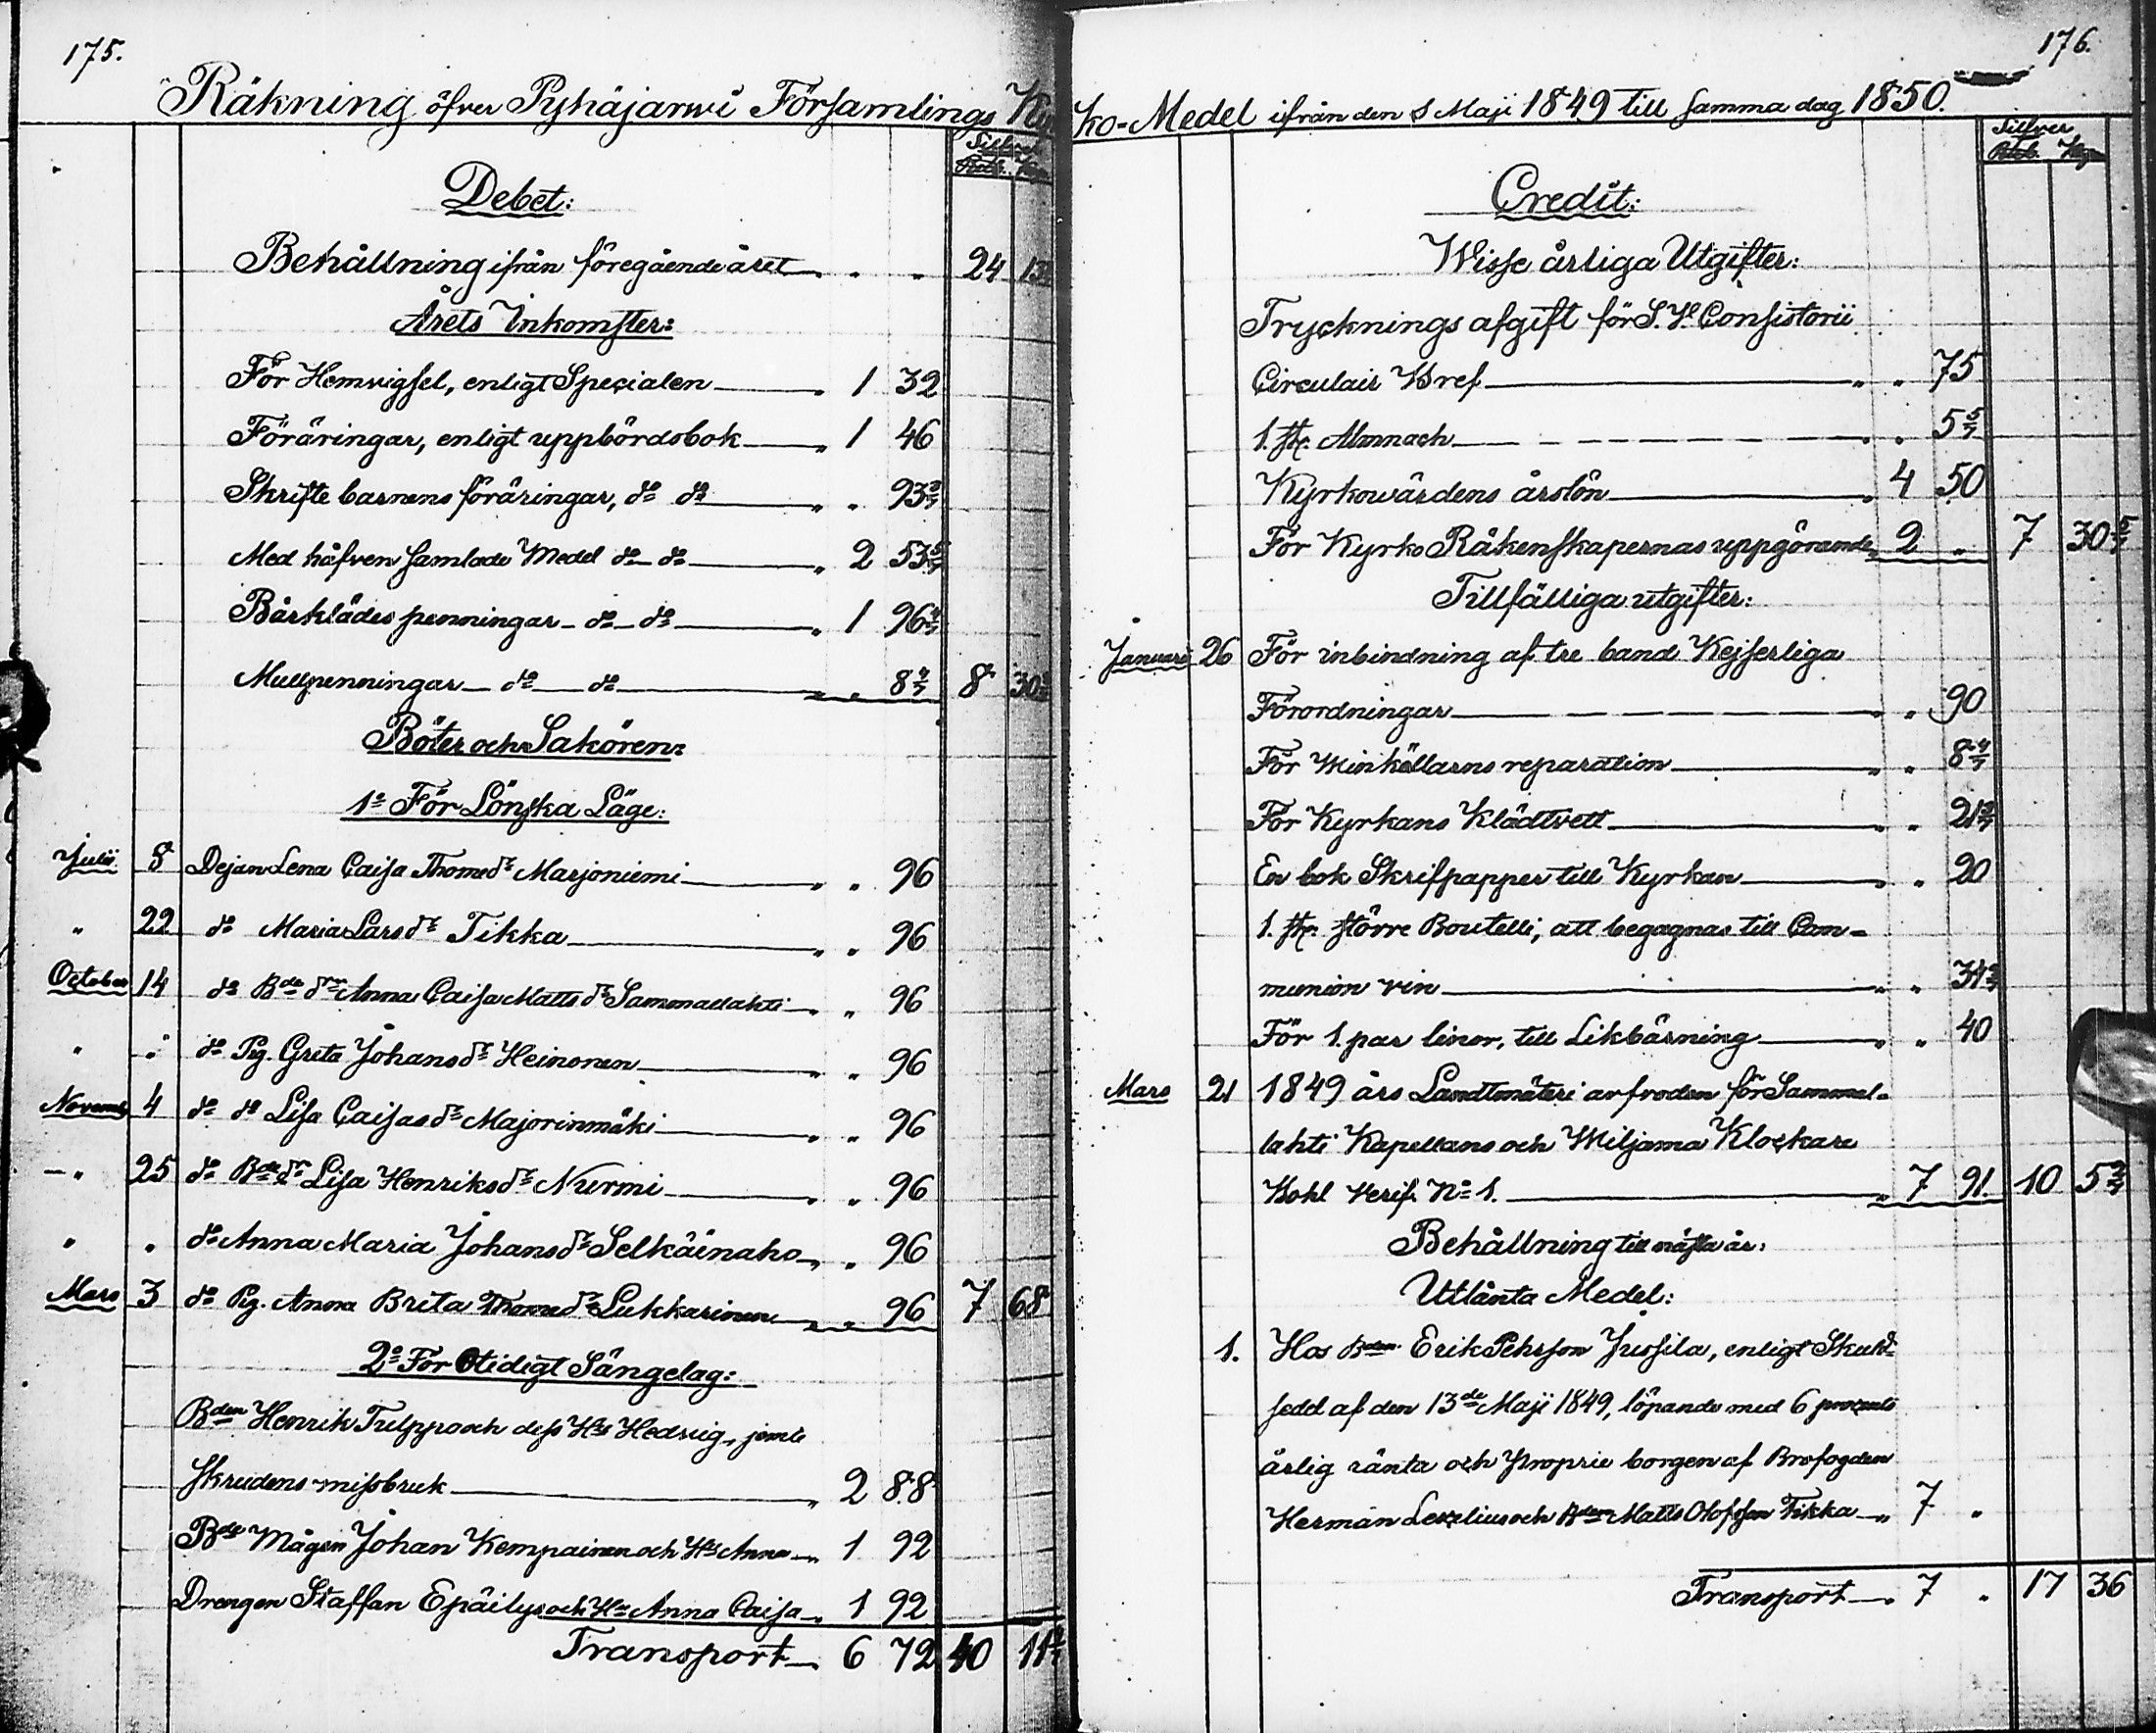 175.
Räkning öfver Pyhäjarwi Församlings Ky
Silfver
Rub. Kop
Debet:
Behållning ifrån föregående året " " 24 12
Årets Inkomster:
För Hemvigsel, enligt Specialen " 1 32
Föräringar, enligt uppbördsbok " 1 46
Skriftebarnens föräringar, do do " " 93 3/7
Med håfven samlade Medel do do " 2 53 5/7
Bårklädes penningar do do " 1 96 4/7
Mullpenningar do do " " 8 4/7 8 30 2/7
Böter och Sakören:
1o För Lönska Läge:
Julii 8 Dejan Lena Caisa Thomsdr Marjoniemi " " 96
" 22 do Maria Larsdr Tikka " " 96
October 14 do Bde dr Anna Caisa Mattsdr Sammallahti " " 96
" " do Pig. Greta Johansdr Heinonen " " 96
Novemb 4 do do Lisa Caisasdr Majorinmäki " " 96
" 25 do Bde dr Lisa Henriksdr Nurmi " " 96
" " do Anna Maria Johansdr Selkäinaho " " 96
Mars 3 do Pig. Anna Brita Thomsdr Lukkarinen " " 96 7 68
2o För Otidigt Sängelag:
Bden Henrik Tulppo och dess Hu Hedvig, jemte
Skrudens missbruk " 2 88
Bde Mågen Johan Kempainen och Hu Anna " 1 92
Drengen Staffan Epäilys och Hu Anna Caisa " 1 92
Transport 6 72 40 11 2/7
176.
ko-Medel ifrån den 1 Maji 1849 till samma dag 1850.
Silfver
Rub. Kop
Credit:
Wisse årliga Utgifter:
Trycknings afgift för S. H. Consistorii
Circulair Bref " " 75
1. st. Almnach " " 5 5/7
Kyrkowärdens årslön " 4 50
För Kyrko Räkenskapernas uppgörande " 2 " 7 30 5/7
Tillfälliga utgifter:
Januarii 26 För inbindning af tre band Kejserliga
Förordningar " " 90
För Winkällarns reparation " " 8 4/7
För Kyrkans Klädtvätt " " 21 3/7
En bok Skrifpapper till Kyrkan " " 20
1. st. större Boutelli, att begagnas till Com-
munion vin " " 34 2/7
För 1. par linor, till Likbärning " " 40
Mars 21 1849 års Landtmäteri arfvoden för Sammal-
lahti Kapellans och Miljama Klockare
Bohl Verif. No 1. " 7 91 10 5 2/7
Behållning till nästa år:
Utlånta Medel:
1. Hos Bden Erik Pehrsson Jussila, enligt Skuld-
sedel af den 13de Maji 1849, löpande med 6 procents
årlig ränta och proprie borgen af Brofogden
Herman Lexelius och Bden Matts Olofsson Tikka " 7 "
Transport " 7 " 17 36